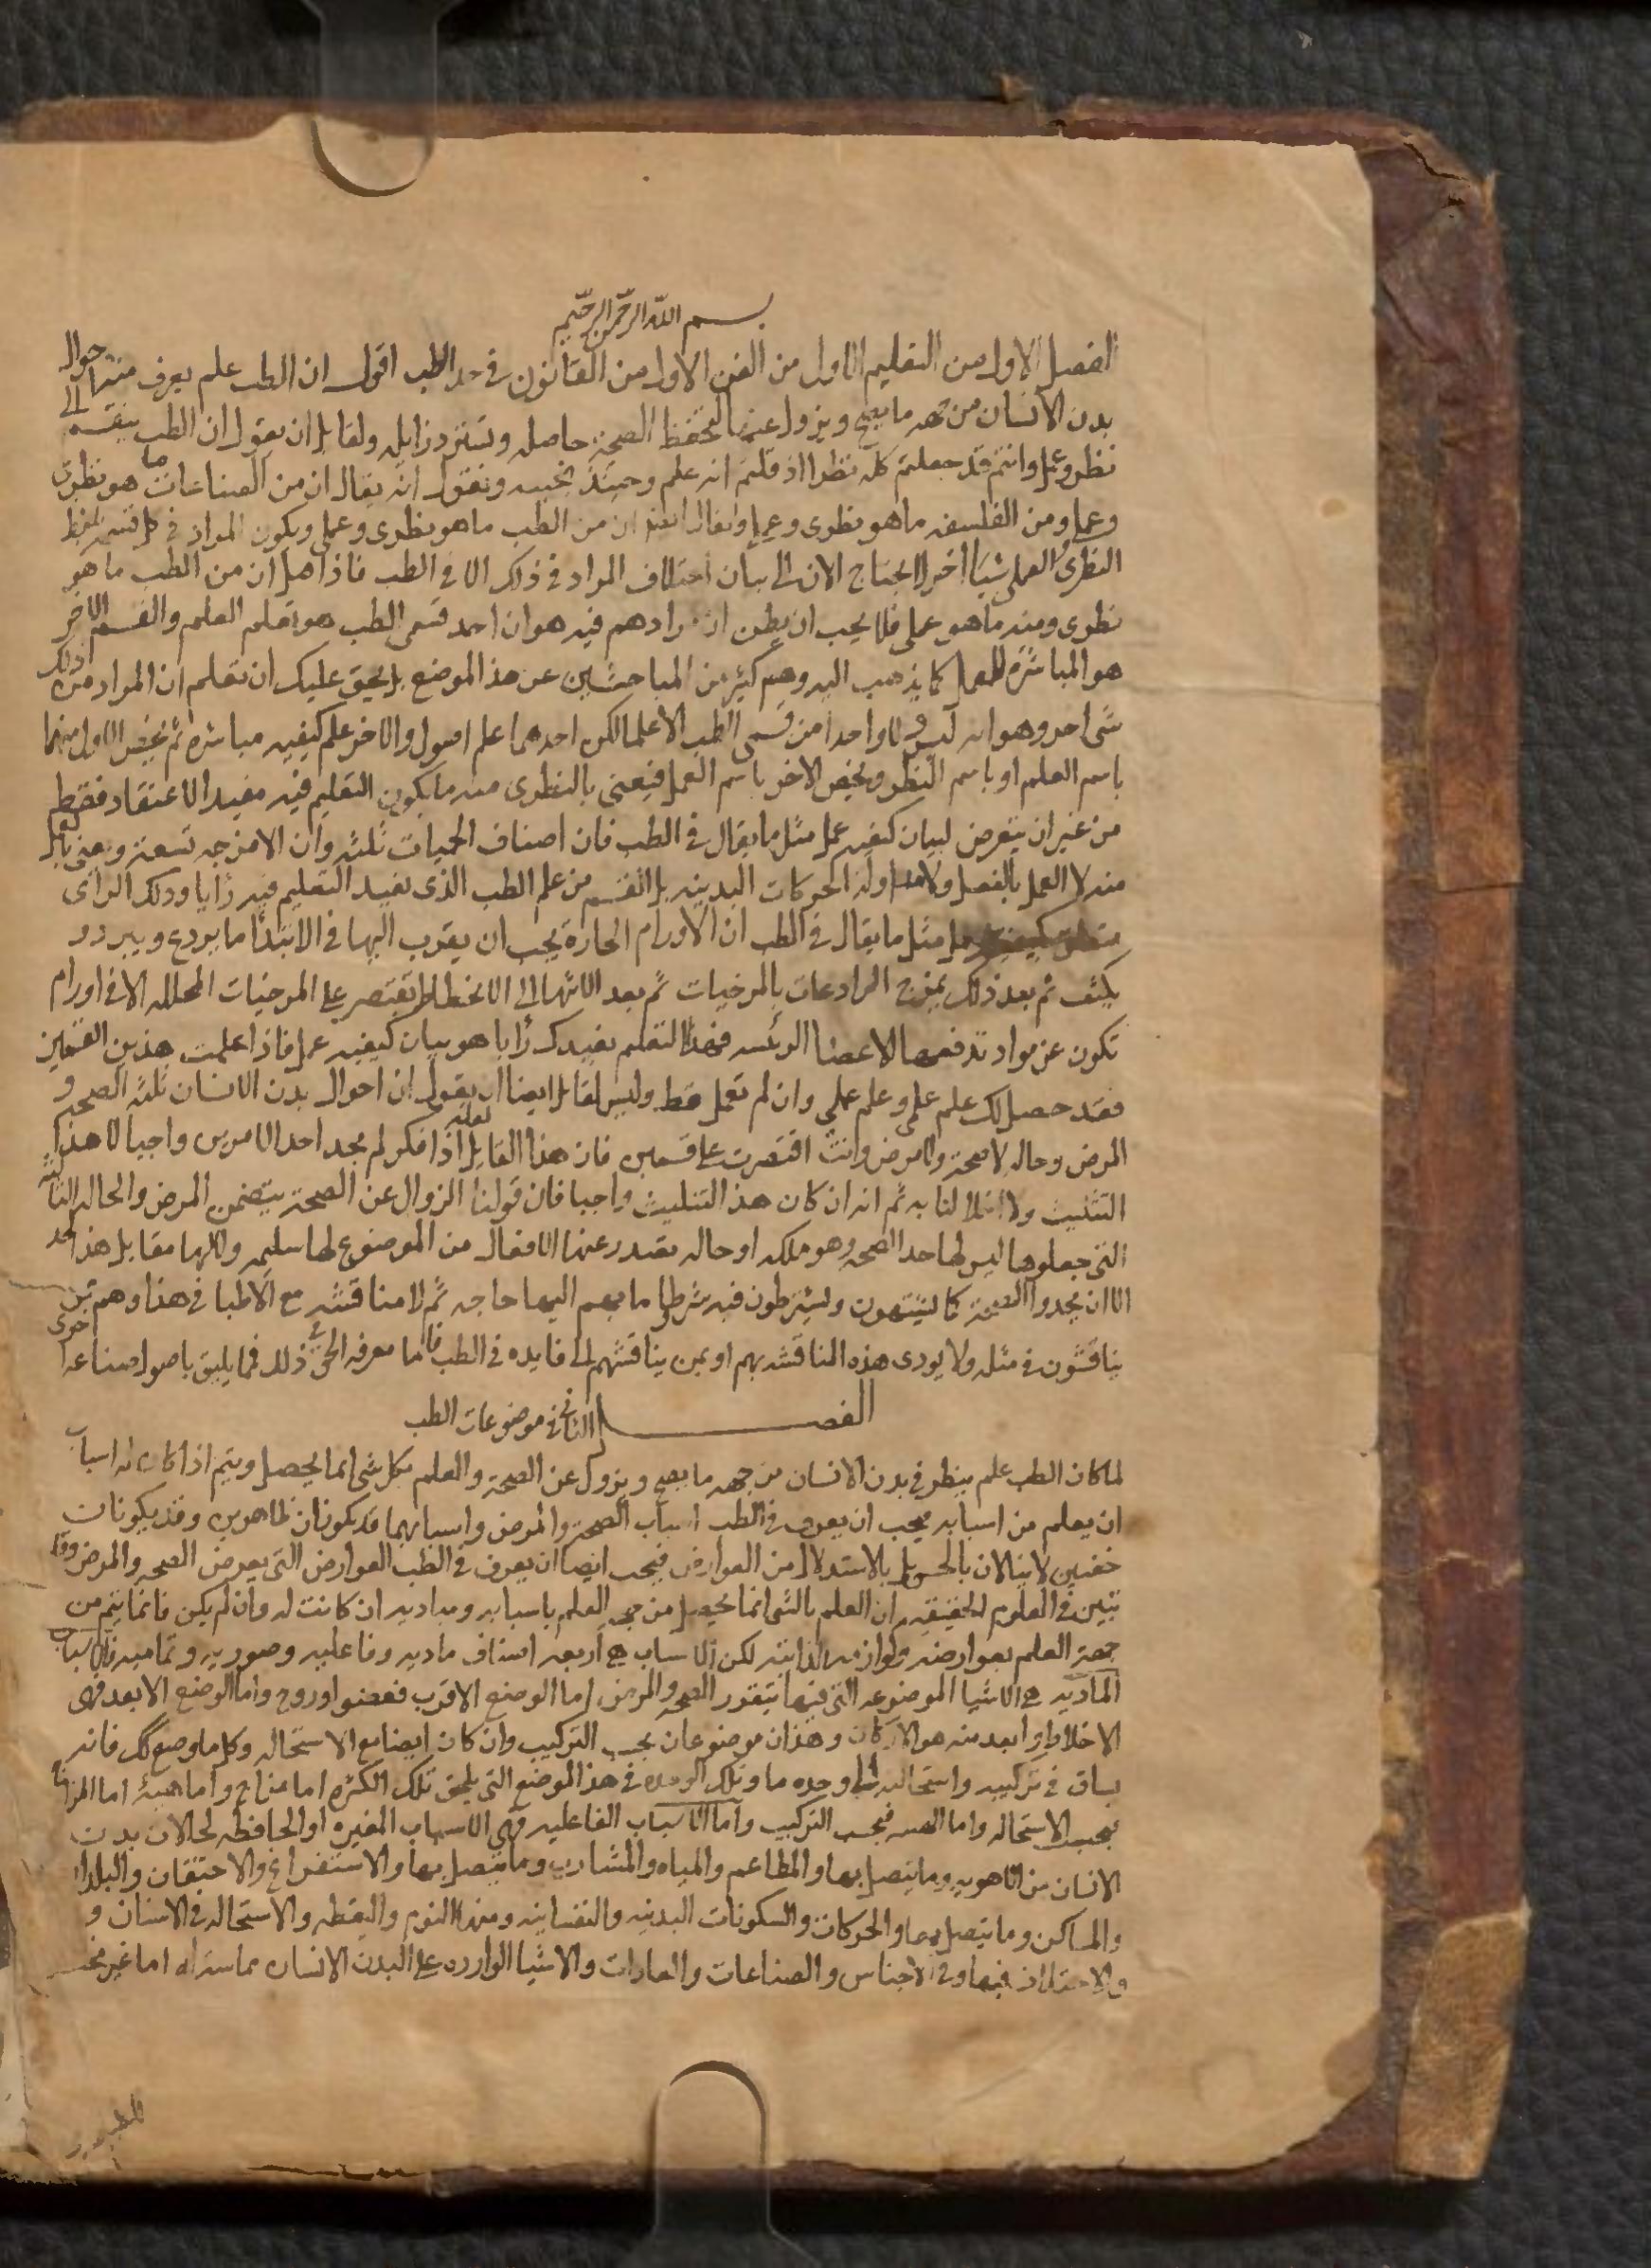 بسم الله الرحمن الرحيم
الفصل الاول من التعليم الاول من الفن الاول من القانون في حد الطب اقول ان الطب علم يعرف منه احوال
بدن الانسان من جهه ما يصح ويزول عنها لتحفظ الصحة حاصله وتسترد زايله ولقايل ان يقول ان الطب ينقسم الى
نظر وعمل وانتم قد جعلتم كله نظرا اذ قلتم انه علم وحينئذ نجيبه ونقول انه يقال ان من الصناعات ما هو نظرى
وعملي ومن الفلسفه ما هو نظرى وعملي ويقال ايضا ان من الطب ما هو نظرى وعملي ويكون المراد في كل قسمه بلفظ
النظرى والعملى شيا اخر لا نحتاج الان الى بيان اختلاف المراد في ذلك الا في الطب فاذا قيل ان من الطب ما هو
نظرى ومنه ما هو عملى فلا يجب ان يظن ان مرادهم فيه هو ان احد قسمى الطب هو تعلم العلم والقسم الاخر
هو المباشرة للعمل كما يذهب اليه وهم كثير من المباحثين عن هذا الموضع بل يحق عليك ان تعلم ان المراد من ذلك
شى اخر وهو انه ليس ولا واحدا من قسمى الطب الا علما لكن احدهما علم اصول والاخر علم كيفيه مباشره ثم يخص الاول منهما
باسم العلم او باسم النظر ويخص الاخر باسم العمل فيعنى بالنظرى منه ما يكون التعليم فيه مفيد الاعتقاد فقط
من غير ان يتعرض لبيان كيفيه عمل مثل ما يقال في الطب فان اصناف الحميات ثلثه وان الامزجه تسعة ونعنى بالعمل
منه لا العمل بالفعل ولا مزاوله الحركات البدنيه بل القسم من علم الطب الذى يفيد التعليم فيه رايا وذلك الراى
متعلق بكيفيه عمل مثل ما يقال في الطب ان الاورام الحارة يجب ان يقرب اليها في الابتدا ما يردع ويبرد و
يكثف ثم بعد ذلك يمزج الرادعات بالمرخيات ثم بعد الانتها الى الانحطاط يقتصر على المرخيات المحلله الا في اورام
تكون عن مواد تدفعها الاعضا الرئسه فهذا التعلم يفيدك رايا هو بيان كيفيه عمل فاذا علمت هذين القسمين
فقد حصل لك علم علمى وعلم عملى وان لم تعمل قط وليس لقايل ايضا ان يقول ان احوال بدن الانسان ثلثه الصحه و
المرض وحاله لا صحة ولا مرض وانت اقتصرت على قسمين فان هذا القايل لعله اذا فكر لم يجد احد الامرين واجبا لا هذا
التثليث ولا اخلالنا به ثم انه ان كان هذا التثليث واجبا فان قولنا الزوال عن الصحة يتضمن المرض والحاله الثالثه
التى جعلوها ليس لها حد الصحه وهو ملكه او حاله تصدر عنها الافعال من الموضوع لها سليمه ولا لها مقابل هذا الحد
الا ان يحدوا الصحة كما يشتهون ويشترطون فيه شرطا ما بهم اليها حاجه ثم لا مناقشه مع الاطبا في هذا وهم ممن
يناقشون في مثله ولا يودى هذه المناقشه بهم او بمن يناقشهم الى فايده في الطب فاما معرفه الحق في ذلك فمما يليق باصول صناعه اخرى
الفصل الثانى في موضوعات الطب
لما كان الطب علم ينظر في بدن الانسان من جهه ما يصح ويزول عن الصحة والعلم بكل شى انما يحصل ويتم اذا كان له اسباب
ان يعلم من اسبابه فيجب ان يعرف في الطب اسباب الصحة والمرض واسبابهما قد يكونان ظاهرين وقد يكونان
خفيين لا ينالان بالحس بل بالاستدلال من العوارض فيجب ايضا ان يعرف في الطب العوارض التى تعرض الصحه والمرض وقد
تبين في العلوم الحقيقيه ان العلم بالشى انما يحصل من جهه العلم باسبابه ومباديه ان كانت له وان لم يكن فانما يتم من
جهة العلم بعوارضه ولوازمه الذاتيه لكن الاسباب هى اربعه اصناف ماديه وفاعليه وصوريه وتماميه فالاسباب
الماديه هى الاشيا الموضوعه التى فيها تتقرر الصحه والمرض اما الوضع الاقرب فعضو او روح واما الوضع الابعد فهى
الاخلاط وابعد منه هو الاركان وهذان موضوعان بحسب التركيب وان كان ايضا مع الاستحاله وكل ما وضع كك فانه
يساق في تركيبه واستحالته الى وحده ما وتلك الوحده في هذا الموضع التى يلحق تلك الكثره اما مزاج واما هيئة اما المزاج
فبحسب الاستحاله واما الهيئه فبحسب التركيب واما الاسباب الفاعليه فهى الاسباب المغيره او الحافظه لحالات بدن
الانسان من الاهويه وما يتصل بها والمطاعم والمياه والمشارب وما يتصل بها والاستفراغ والاحتقان والبلدان
والمساكن وما يتصل بها والحركات والسكونات البدنيه والنفسانيه ومنها النوم واليقظه والاستحاله في الاسنان و
والاختلاف فيها وفي الاجناس والصناعات والعادات والاشيا الوارده على البدن الانسان مماسه له اما غير